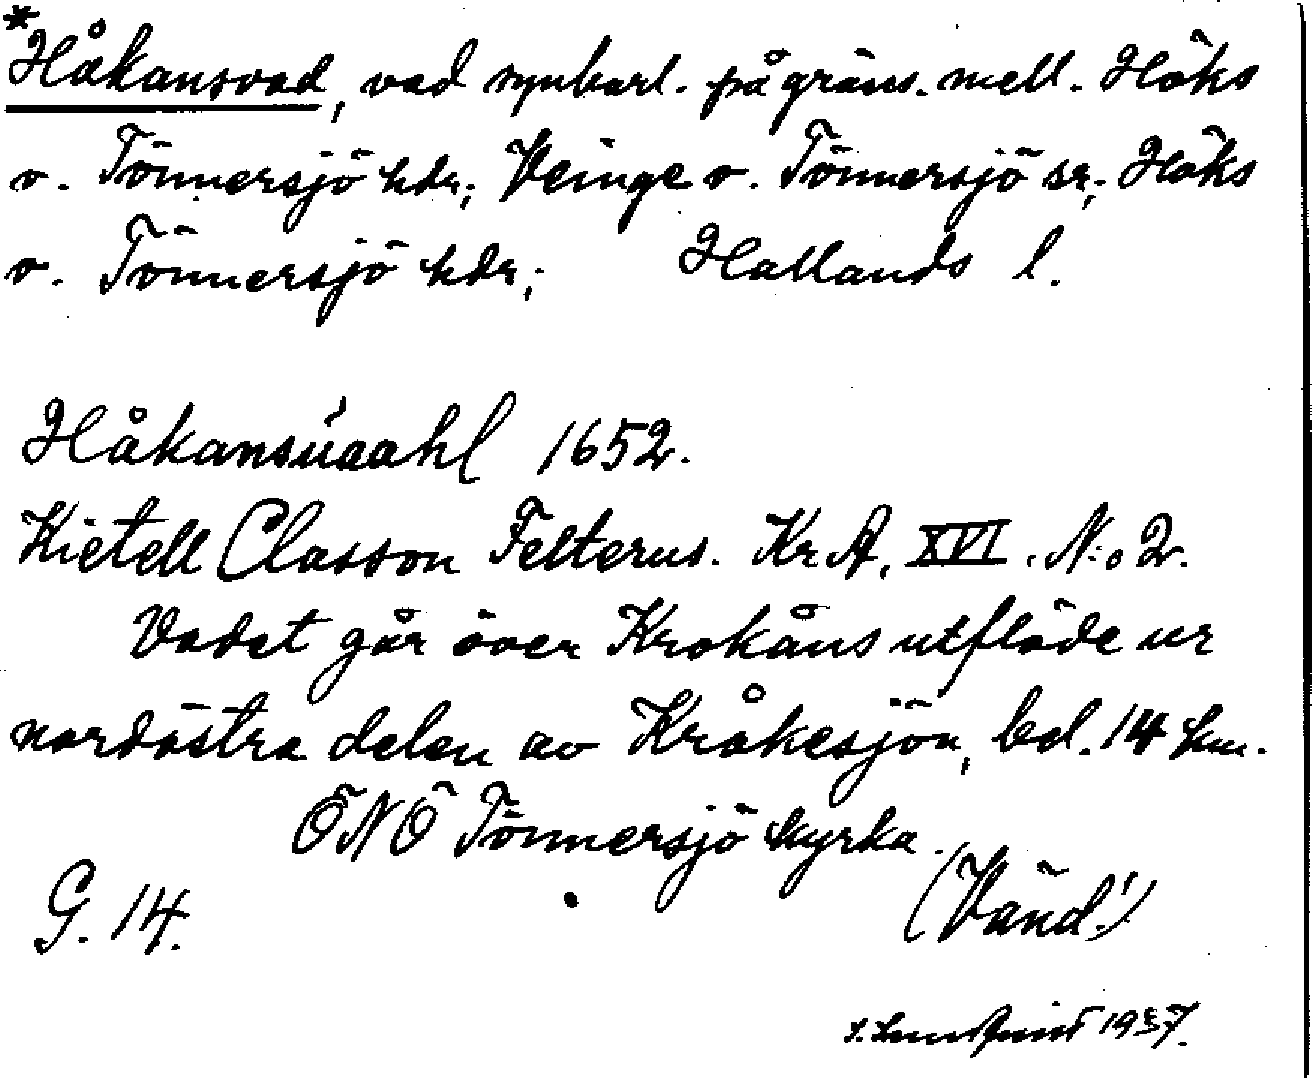 *Håkansvad, vad synbarl. på gräns. mell. Höks
o. Tönnersjö hdr; Veinge o. Tönnersjö sr; Höks
o. Tönnersjö hdr; Hallands l.
Håkansúaahl 1652.
Kietell Classon Felterus. Kr.A. XVI. N:o 2.
Vadet går över Krokåns utflöde ur
nordöstra delen av Kråkesjön, bel. 14 km.
ÖNÖ Tönnersjö kyrka.
G. 14.
(Vänd!)
1937.